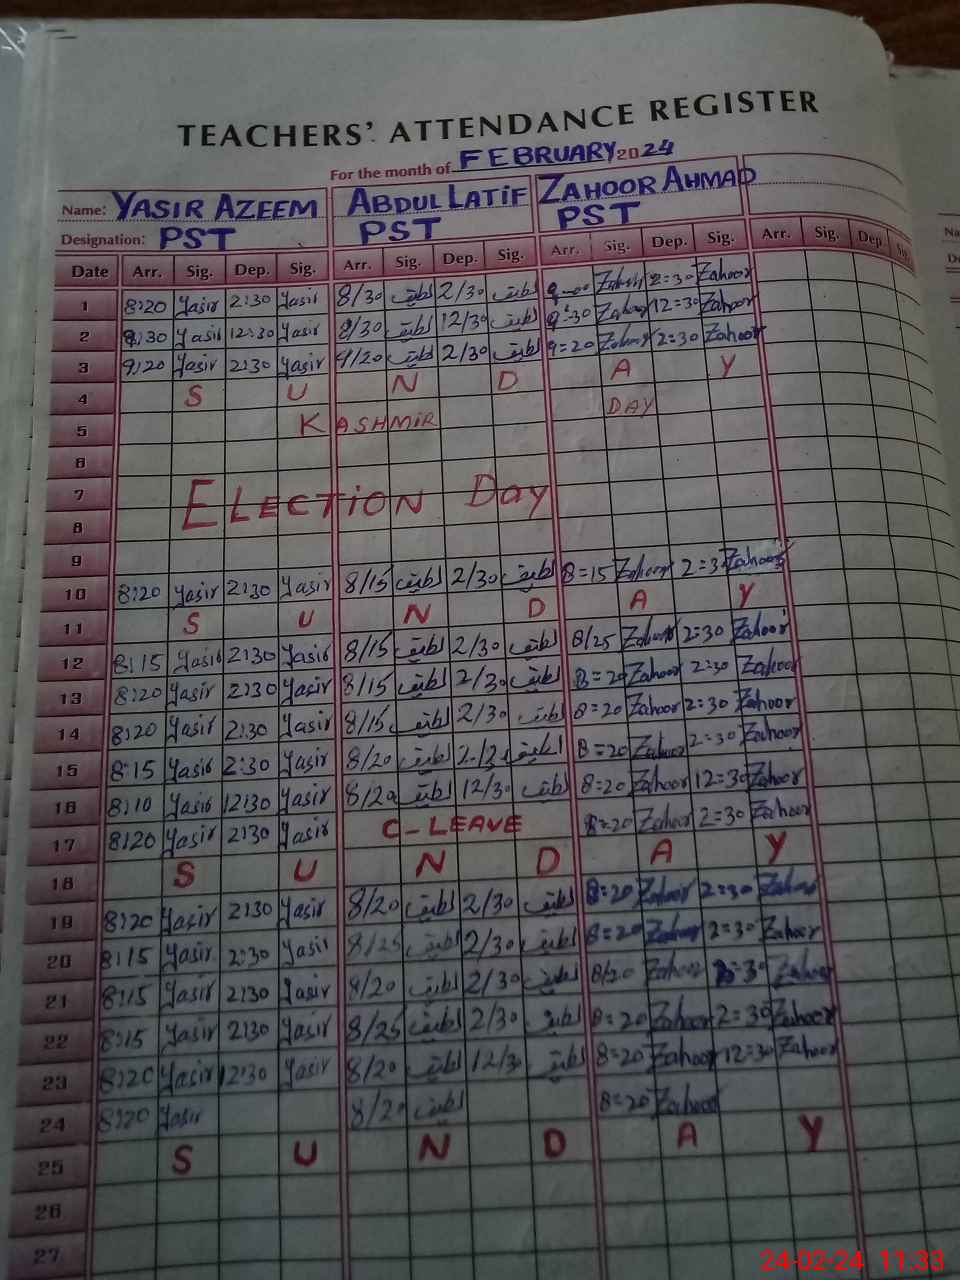 TEACHERS' ATTENDANCE REGISTER
For the month of FEBRUARY 2024
Name: YASIR AZEEM ABDUL LATIF ZAHOOR AHMAD
Designation: PST PST PST
Date Arr. Sig. Dep. Sig. Arr. Sig. Dep. Sig. Arr. Sig. Dep. Sig. Arr. Sig. Dep.
1 8:20 Yasir 2:30 Yasir 8/30 لطیف 2/30 لطیف Zahoor 2=30 Zahoor
2 8:30 Yasir 12:30 Yasir لطیف 12/30 لطیف 9=30 Zahoor 12=30 Zahoor
3 9:20 Yasir 2:30 Yasir 9/20 لطیف 2/30 لطیف 9=20 Zahoor 2=30 Zahoor
4 S U N D A Y
5 KASHMIR DAY
6
7 ELECTION Day
8
9
10 8:20 Yasir 2:30 Yasir 8/15 لطیف 2/30 لطیف 8=15 Zahoor 2=3 Zahoor
11 S U N D A Y
12 8:15 Yasir 2:30 Yasir 8/15 لطیف 2/30 لطیف 8/25 Zahoor 2=30 Zahoor
13 8:20 Yasir 2:30 Yasir 8/15 لطیف 2/30 لطیف 8=20 Zahoor 2=30 Zahoor
14 8:20 Yasir 2:30 Yasir 8/15 لطیف 2/30 لطیف 8=20 Zahoor 2=30 Zahoor
15 8:15 Yasir 2:30 Yasir 8/20 لطیف لطیف 8=20 Zahoor 2=30 Zahoor
16 8:10 Yasir 12:30 Yasir 8/20 لطیف 12/30 لطیف 8=20 Zahoor 12=30 Zahoor
17 8:20 Yasir 2:30 Yasir C-LEAVE 8=20 Zahoor 2=30 Zahoor
18 S U N D A Y
19 8:20 Yasir 2:30 Yasir 8/20 لطیف 2/30 لطیف 8=20 Zahoor 2=30 Zahoor
20 8:15 Yasir 2:30 Yasir 8/25 لطیف 2/30 لطیف 8=20 Zahoor 2=30 Zahoor
21 8:15 Yasir 2:30 Yasir 8/20 لطیف 2/30 لطیف 8/20 Zahoor Zahoor
22 8:15 Yasir 2:30 Yasir 8/25 لطیف 2/30 لطیف 8=20 Zahoor 2=30 Zahoor
23 8:20 Yasir 12:30 Yasir 8/20 لطیف 12/30 لطیف 8=20 Zahoor 12=30 Zahoor
24 8:20 Yasir 8/20 لطیف 8=20 Zahoor
25 S U N D A Y
26
27
24-02-24 11:33